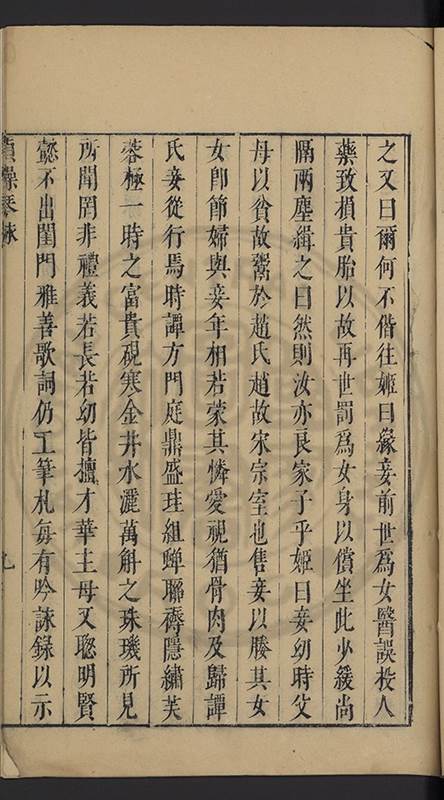 之又曰爾何不偕往姬曰緣妾前世爲女醫誤投人
藥致損貴胎以故再世罰爲女身以償坐此少緩尚
隔兩塵緝之曰然則汝亦良家子乎姬曰妾幼時父
母以貧故鬻於趙氏趙故宋宗室也售妾以媵其女
女卽節婦與妾年相若蒙其憐愛視猶骨肉及歸譚
氏妾從行焉時譚方門庭鼎盛珪組蟬聯褥隱繡芙
蓉極一時之富貴硯寒金井水灑萬斛之珠璣所見
所聞罔非禮義若長若幼皆擅才華主母又聰明賢
懿不出閨門雅善歌詞仍工筆札每有吟詠錄以示
九